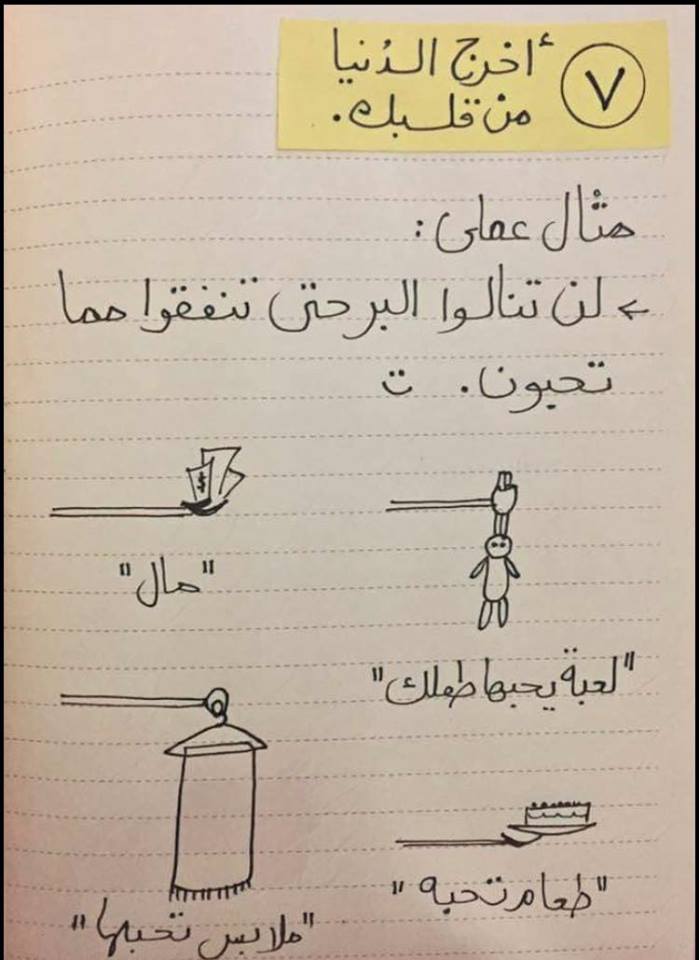 ٧ أخرج الدُنيا
من قلبك.
مثال عملى:
← لن تنالوا البر حتى تنفقوا مما
تحبون. ت
"مال"
$
"لعبة يحبها طفلك"
"ملابس تحبها"
"طعام تحبه"